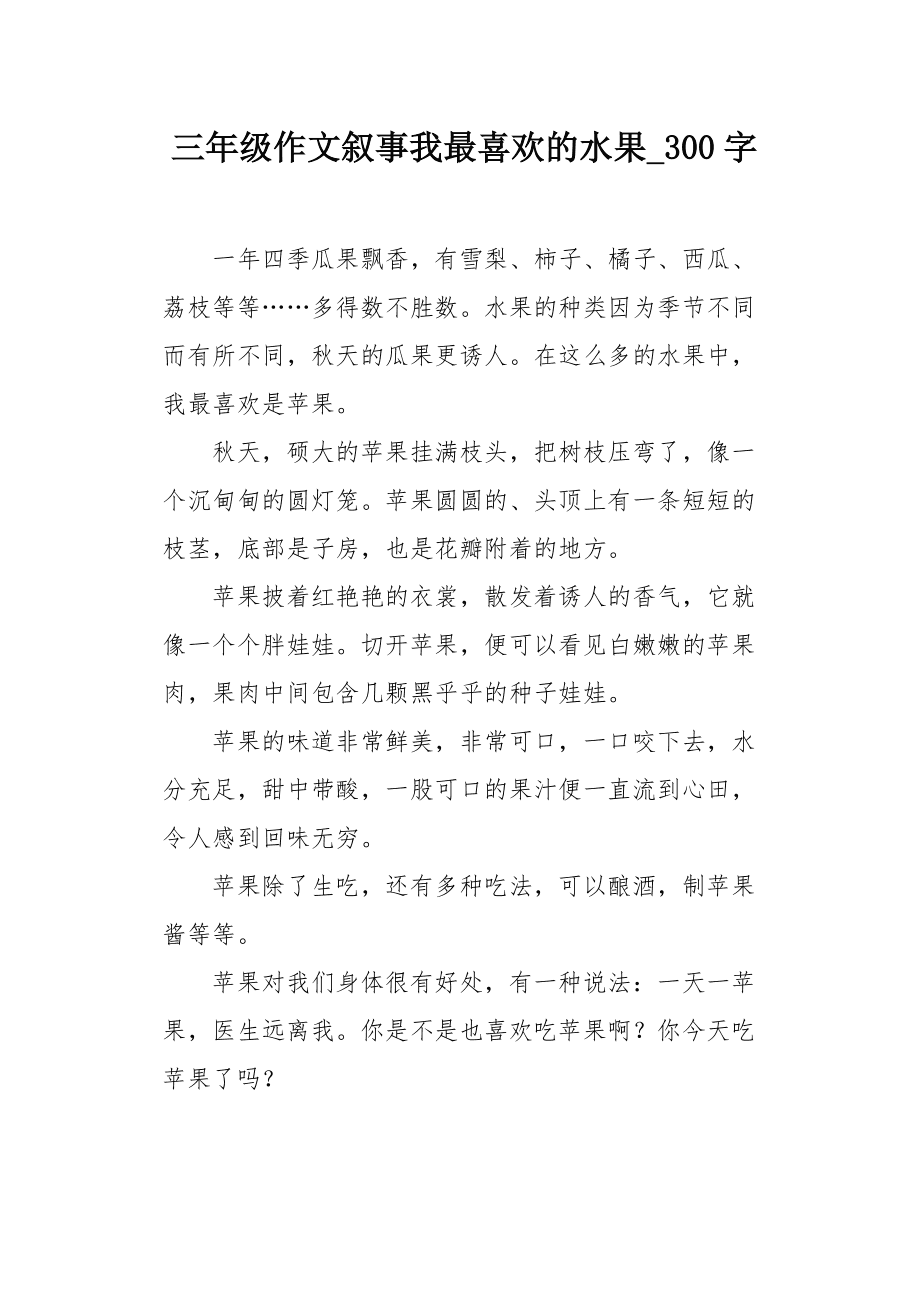 三年级作文叙事我最喜欢的水果_300字
一年四季瓜果飘香，有雪梨、柿子、橘子、西瓜、
荔枝等等……多得数不胜数。水果的种类因为季节不同
而有所不同，秋天的瓜果更诱人。在这么多的水果中，
我最喜欢是苹果。
秋天，硕大的苹果挂满枝头，把树枝压弯了，像一
个沉甸甸的圆灯笼。苹果圆圆的、头顶上有一条短短的
枝茎，底部是子房，也是花瓣附着的地方。
苹果披着红艳艳的衣裳，散发着诱人的香气，它就
像一个个胖娃娃。切开苹果，便可以看见白嫩嫩的苹果
肉，果肉中间包含几颗黑乎乎的种子娃娃。
苹果的味道非常鲜美，非常可口，一口咬下去，水
分充足，甜中带酸，一股可口的果汁便一直流到心田，
令人感到回味无穷。
苹果除了生吃，还有多种吃法，可以酿酒，制苹果
酱等等。
苹果对我们身体很有好处，有一种说法：一天一苹
果，医生远离我。你是不是也喜欢吃苹果啊？你今天吃
苹果了吗？